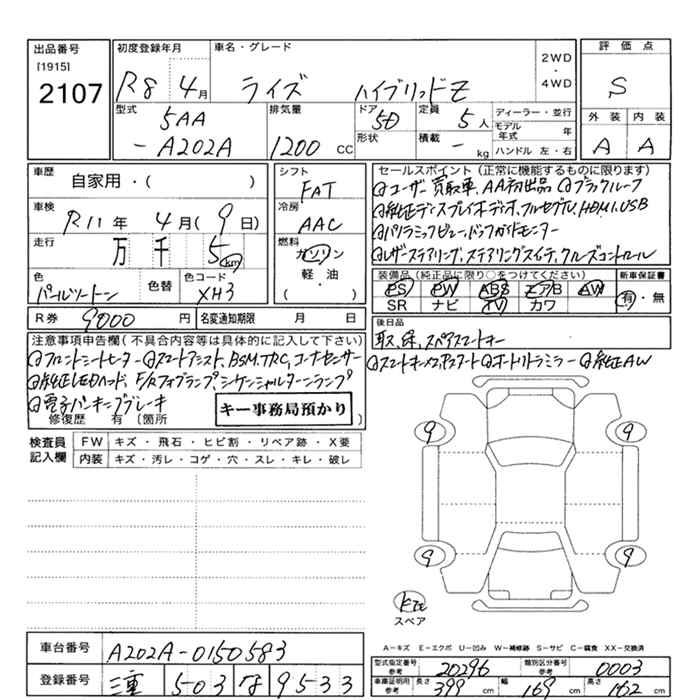 出品番号
[1915]
2107
初度登録年月
R8 4月
車名・グレード
ライズ ハイブリッドZ
2WD
・
4WD
評価点
S
外装 内装
A A
型式
5AA
-A202A
排気量
1200 CC
ドア
5D
形状
定員
5人
積載
- kg
ディーラー・並行
モデル年式 年
ハンドル 左・右
車歴
自家用・( )
車検
R11年 4月(9日)
走行
万 千 5km
色
パールツートン
色替
色コード
XH3
シフト
FAT
冷房
AAC
燃料
ガソリン
軽・油
( )
R券 9000円
名変通知期限 月 日
セールスポイント(正常に機能するものに限ります)
◎ユーザー買取車、AA初出品 ◎ブラックルーフ
◎純正ディスプレイオーディオ、フルセグTV、HDMI、USB
◎パノラミックビュー、バックガイドモニター
◎レザーステアリング、ステアリングスイッチ、クルーズコントロール
装備品(純正品に限り○をつけてください)
PS PW ABS エアB AW
SR ナビ TV カワ
新車保証書
有・無
後日品
取、保、スペアスマートキー
◎スマートキー ◎オートリトラミラー ◎純正AW
注意事項申告欄(不具合内容等は具体的に記入して下さい)
◎フロントシートヒーター ◎スマートアシスト、BSM、TRC、コーナーセンサー
◎純正LEDヘッド、F/Rフォグランプ、シーケンシャルターンランプ
◎電子パーキングブレーキ
修復歴 有(箇所
キー事務局預かり
検査員記入欄
FW キズ・飛石・ヒビ割・リペア跡・X要
内装 キズ・汚レ・コゲ・穴・スレ・キレ・破レ
9 9
9 9
スペア
A-キズ E-エクボ U-凹み W-補修跡 S-サビ C-腐食 XX-交換済
車台番号 A202A-0150583
登録番号 三重 503 な 9533
型式指定番号 参考 20296
類別区分番号 参考 0003
車庫証明用 参考 長さ 399 cm 幅 169 cm 高さ 162 cm